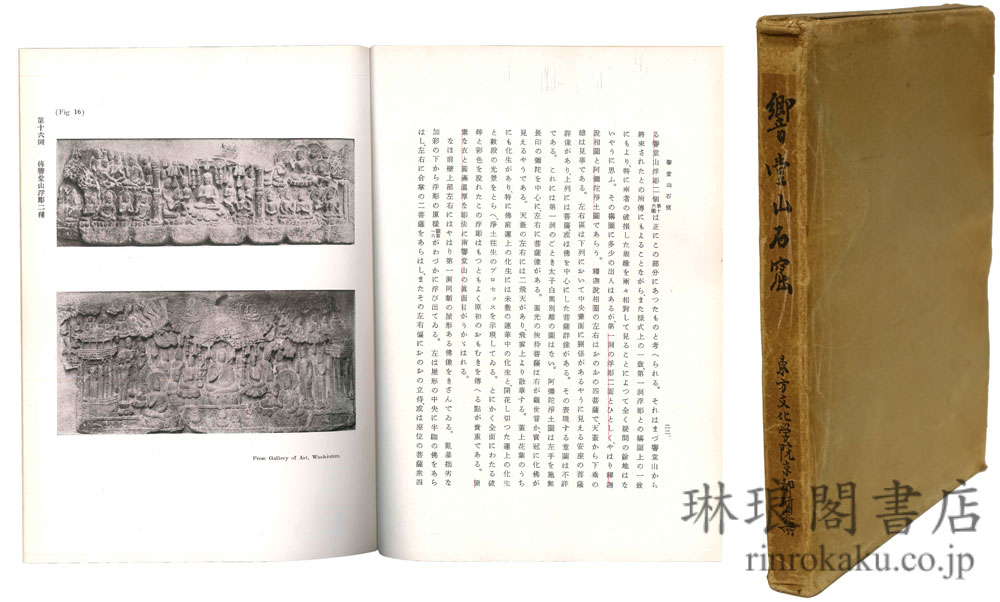 (Fig 16)
第十六図 傳響堂山浮彫二種
Freer Gallery of Art, Washinton.
響堂山石窟
る響堂山浮彫二個は正にこの部分にあつたものと考へられる。それはまづ響堂山から
將來されたとの所傳にもよることながらまた様式上の一致第一洞浮彫との構圖上の一致
にもより、特に兩者の破損した周縁を兩々相對して見ることによつて全く疑問の餘地はな
いやうに思ふ。その構圖に多少の出入はあるが第一洞の浮彫二面とひとしくやはり釋迦
説相圖と阿彌陀淨土圖であらう。釋迦説相圖の左右はおのおの四菩薩で、天蓋から下垂の
總は見事である。左右區は下列において中央畫面に關係があるやうに見える安座の菩薩
群像があり、上列には菩薩或は佛を中心にした菩薩群像がある。その表現する意圖は不詳
である。これには第一洞のごとき太子白馬別離の圖はない。阿彌陀淨土圖は左手を施無
畏印の彌陀を中心に、左右に菩薩像がある。圓光の俠侍菩薩は右が觀世音か、寶冠に化佛が
見えるやうである。天蓋の左右には二飛天があり、飛雲上より散華する。蓋上花葉のうち
にも化生があり、特に佛前蓮上の化生には未敷の蓮華中の化生と、開花し切つた蓮上の化生
と數段の光景をとらへ、淨土往生のプロセツスを示現してゐる。とにかく全面にわたる破
碎と彩色を脱れたこの浮彫はもつともよく原初のおもむきを傳へる點が貴重である。簡
素な衣と圓滿温厚な彫法に南響堂山の眞面目がうかゞはれる。
なほ前壁上部左右にはやはり第一洞同類の屋形ある佛像をきざんでゐる。亂暴拙劣な
加彩の下から浮彫の原様がわづかに浮び出てゐる。左は屋形の中央に半跏の佛をあら
はし、左右に合掌の二菩薩をあらはし、またその左右偏におのおの立侍、或は座位の菩薩衆四
響堂山石窟
東方文化学院京都研究所
琳琅閣書店
rinrokaku.co.jp